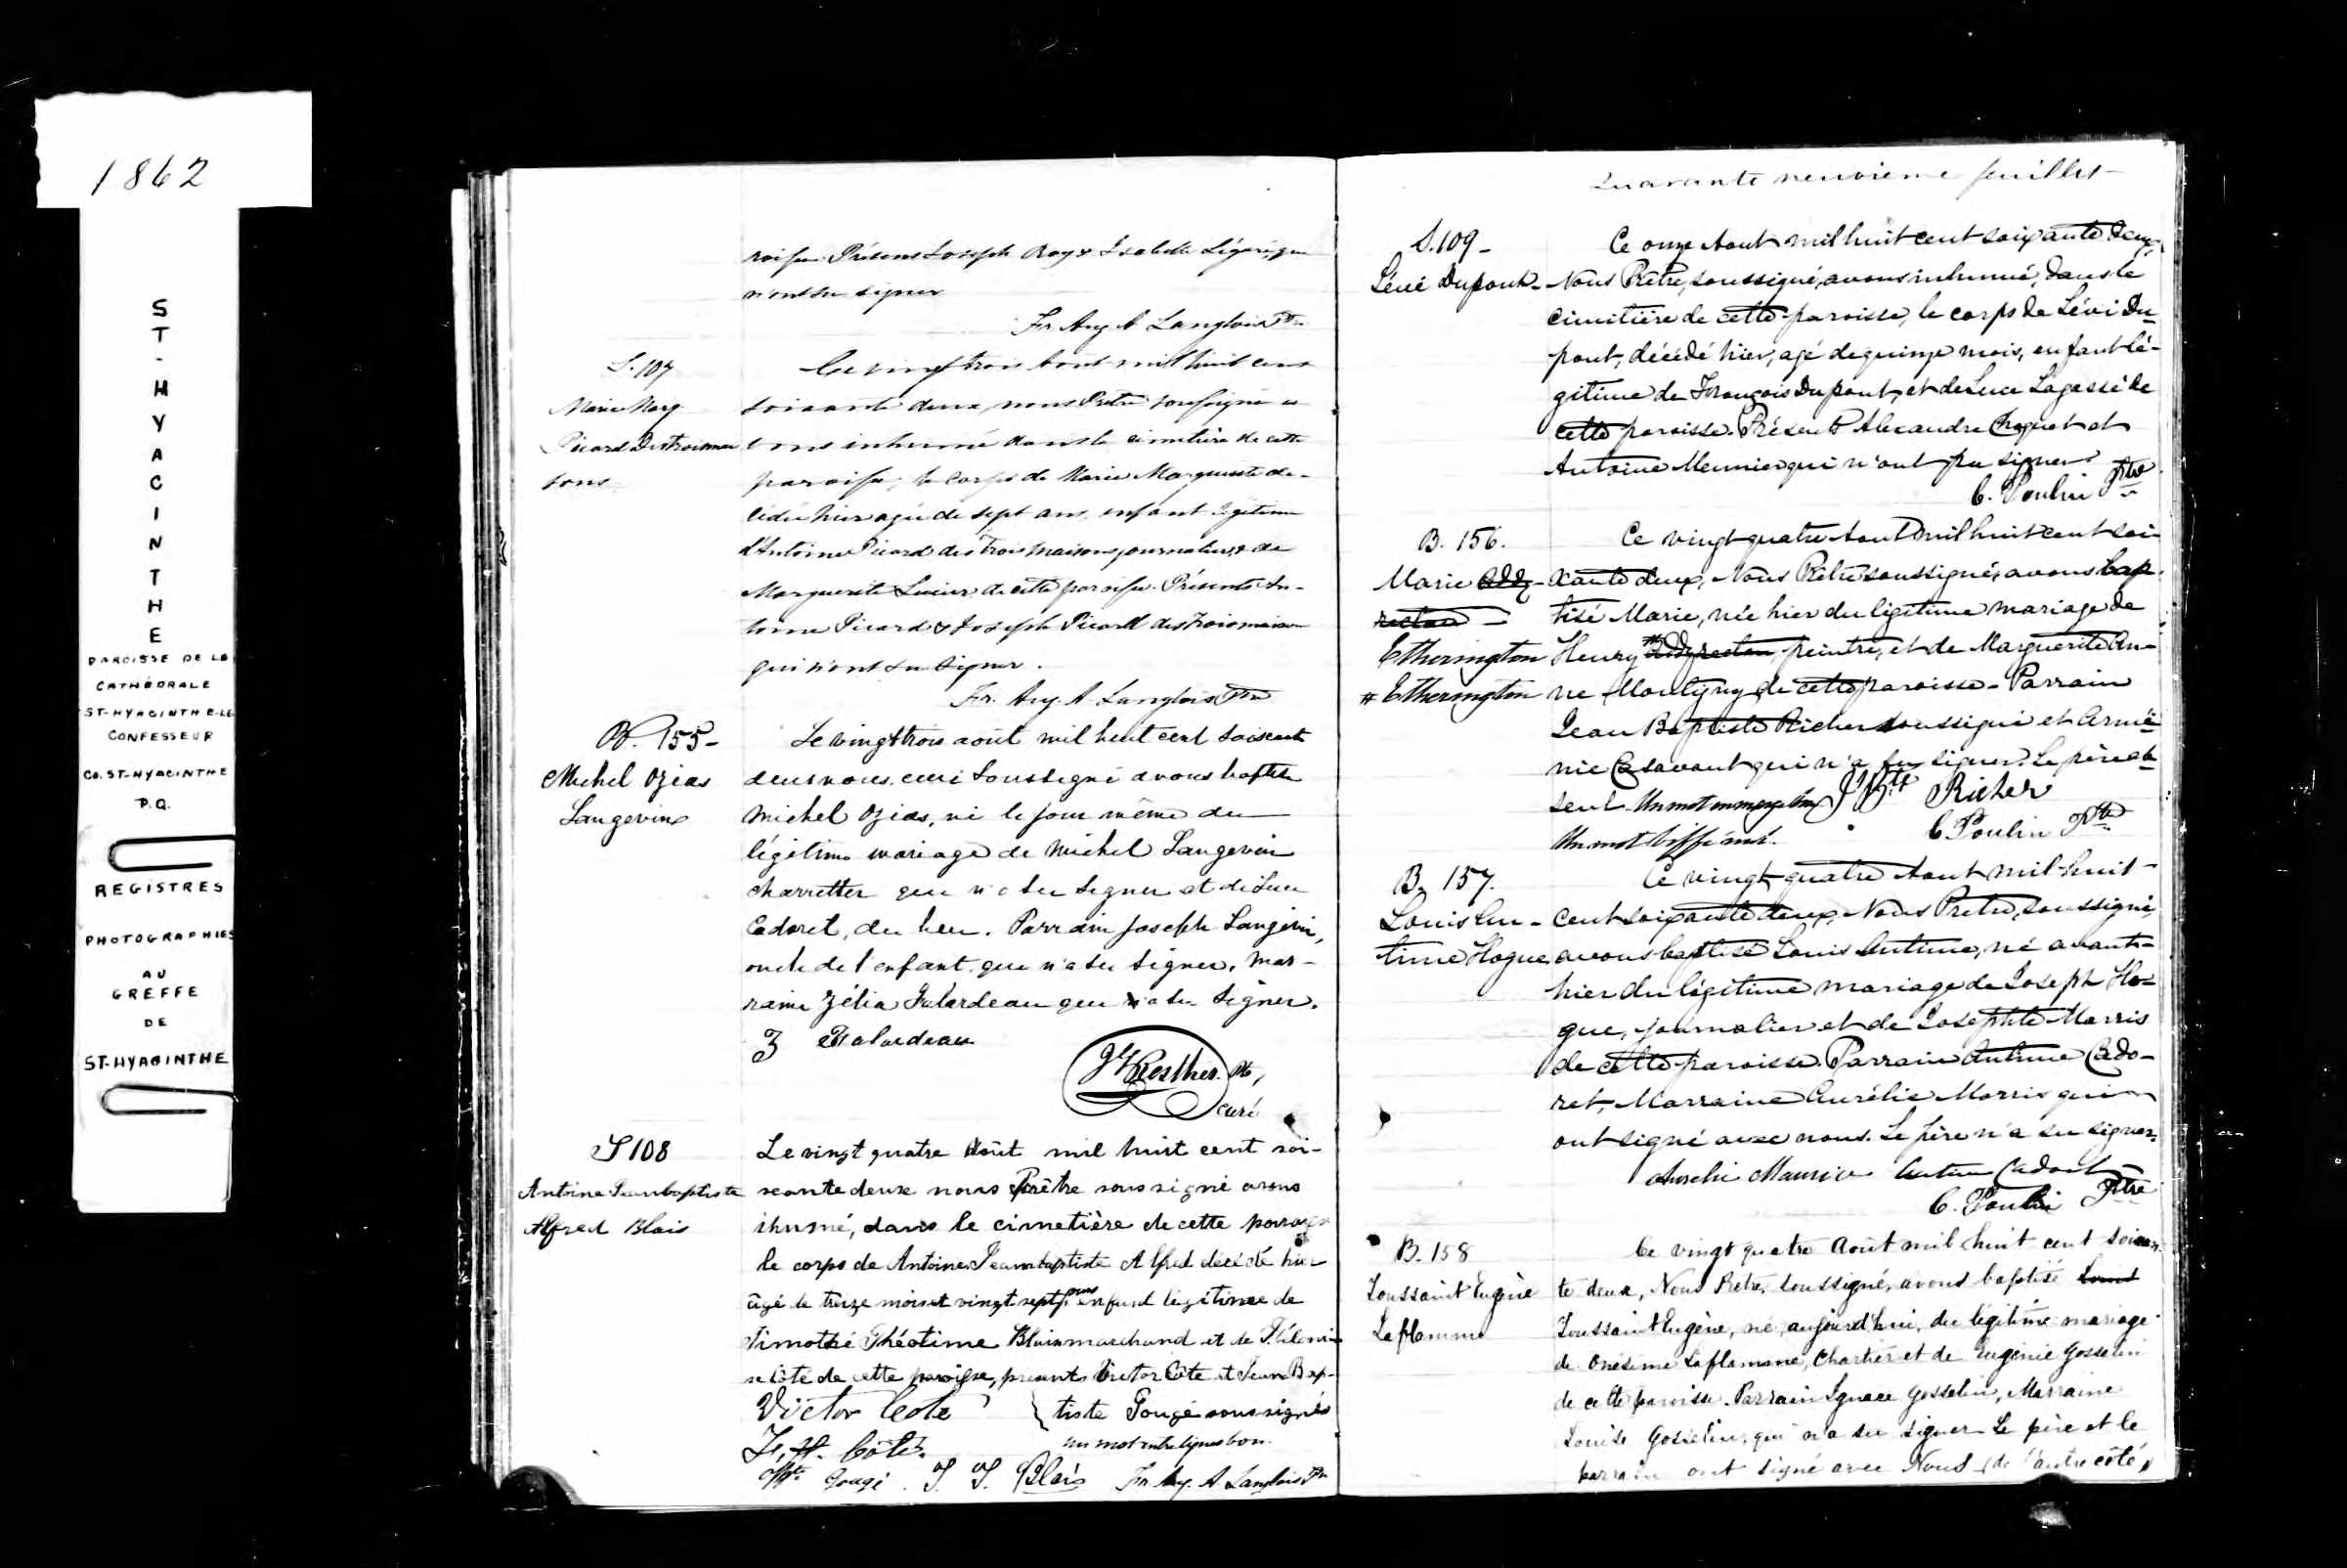 1862
ST-HYACINTHE
PAROISSE DE LA
CATHÉDRALE
ST-HYACINTHE-LE
CONFESSEUR
CO. ST-HYACINTHE
P.Q.
REGISTRES
PHOTOGRAPHIES
AU
GREFFE
DE
ST-HYACINTHE
roisse Présens Joseph Roy & Isabelle qui
n'ont su signer
Fr. Aug. A Langlois Ptre
S. 107
Marie Marg.
Picard Destroismai
sons
Ce vingt trois Aout mil huit cent
soixante deux, nous Prêtre soussigné a
vons inhumé dans le cimetière de cette
paroisse, le corps de Marie Marguerite dé-
cédée hier agée de sept ans, enfant légitime
d'Antoine Picard des Trois maisons, journalier, & de
Marguerite de cette paroisse. Présents An-
toine Picard & Joseph Picard des Troismaisons
qui n'ont su signer.
Fr. Aug. A Langlois Ptre
B. 155-
Michel Ozias
Langevin
Le vingt trois août mil huit cent soixante
deux nous curé soussigné avons baptisé
Michel Ozias, né le jour même du
légitime mariage de Michel Langevin
charretier qui n'a su signer et de Luce
Cadoret, du lieu. Parrain Joseph Langevin,
oncle de l'enfant qui n'a su signer, mar-
raine Zélia Falardeau qui a su signer.
Z Falardeau
Resther Ptr,
curé
S 108
Antoine Jeanbaptiste
Alfred Blais
Le vingt quatre Août mil huit cent soi-
xante deux nous Prêtre soussigné avons
ihumé, dans le cimetière de cette paroisse
le corps de Antoine Jeanbaptiste Alfred décédé hier
âgé de treize mois et vingt sept jours enfant légitime de
Timothé Théotime Blais marchand et de
Côté de cette paroisse, présents Victor Côté et Jean Bap-
tiste Gougé soussignés
Victor Cote
un mot entre lignes bon.
J. H. Côté.
Bte Gougé. T. T. Blais Fr. Aug. A Langlois Ptre
Quarante neuvième feuillet
S. 109-
Lévi Dupont-
Ce onze Aout mil huit cent soixante deux,
Nous Prêtre, soussigné, avons inhumé, dans le
cimetière de cette paroisse, le corps de Lévi Du-
pont, décédé hier, agé de quinze mois, enfant lé-
gitime de François Dupont, et de Luce Lagassé de
cette paroisse. Présents Alexandre Choquet et
Antoine Meunier qui n'ont pu signer.
C. Poulin Ptre
B. 156.
Marie
Etherington
# Etherington
Ce vingt quatre Aout mil huit cent soi-
xante deux, Nous Prêtre soussigné, avons bap-
tisé Marie, née hier du légitime mariage de
Henry # peintre, et de Marguerite An-
ne Montigny de cette paroisse - Parrain
Jean Baptiste Richer soussigné et Armé-
nie Casavant qui n'a pu signer. Le père ab-
sent. Un mot en marge bon J Bte Richer
Un mot biffé nul. C. Poulin Ptre
B. 157.
Louis An-
time Hogue
Ce vingt quatre Aout mil-huit-
cent soixante deux, Nous Prêtre, soussigné,
avons baptisé Louis Antime, né avant-
hier du légitime mariage de Joseph Ho-
gue, journalier et de Josephte Morris
de cette paroisse. Parrain Antime Cado-
ret, Marraine Aurélie Morris qui
ont signé avec nous. Le père n'a su signer.
Aurelie Maurice Antime Cadoret
C. Poulin Ptre
B. 158
Toussaint Eugène
Laflamme
Ce vingt quatre Août mil huit cent soixan-
te deux, Nous Prêtre, soussigné, avons baptisé
Toussaint Eugène, né, aujourd'hui, du légitime mariage
de Onésime Laflamme, Charretier et de Eugénie Gosselin
de cette paroisse. Parrain Ignace Gosselin, Marraine
Louise Gosselin, qui n'a su signer. Le père et le
parrain ont signé avec Nous (de l'autre côté)